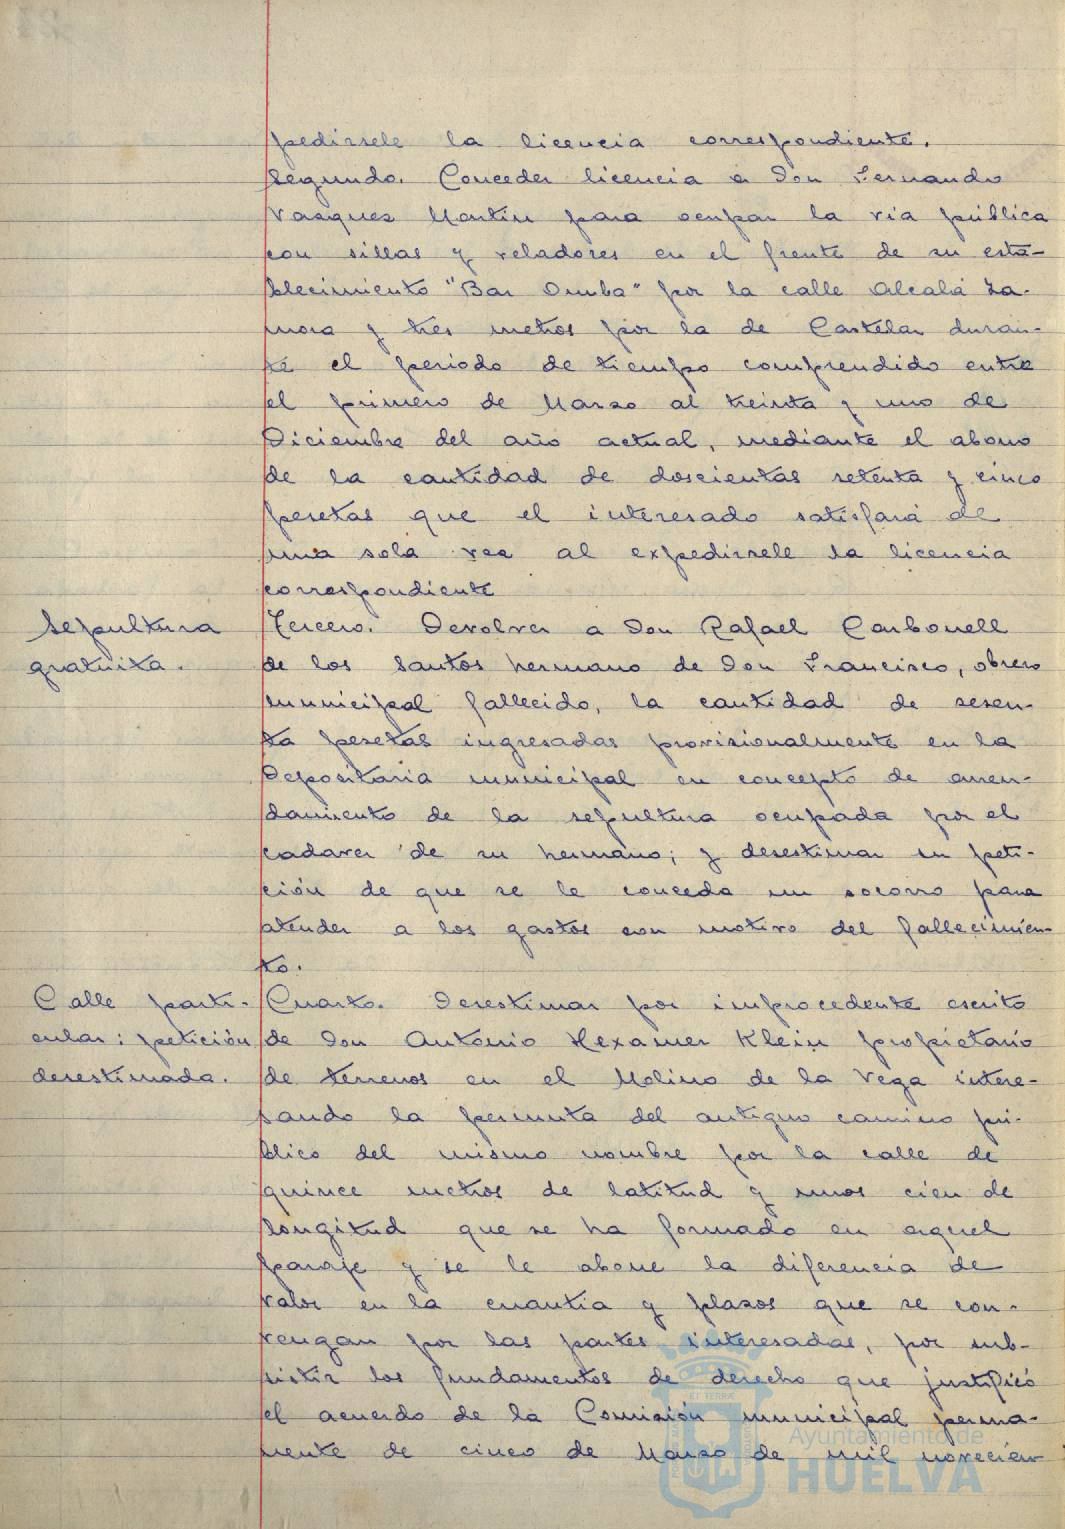 pedirsele la licencia correspondiente.
Segundo. Conceder licencia a Don Fernando
Vazquez Martin para ocupar la via pública
con sillas y veladores en el frente de su esta-
blecimiento "Bar Onuba" por la calle Alcalá Za-
mora y tres metros por la de Castelar duran-
te el periodo de tiempo comprendido entre
el primero de Marzo al treinta y uno de
Diciembre del año actual, mediante el abono
de la cantidad de doscientas setenta y cinco
pesetas que el interesado satisfará de
una sola vez al expedirsele la licencia
correspondiente
Sepultura
gratuita.
Tercero. Devolver a Don Rafael Carbonell
de los Santos hermano de Don Francisco, obrero
municipal fallecido, la cantidad de sesen-
ta pesetas ingresadas provisionalmente en la
Depositaria municipal en concepto de arren-
damiento de la sepultura ocupada por el
cadaver de su hermano; y desestimar su peti-
ción de que se le conceda un socorro para
atender a los gastos con motivo del fallecimien-
to.
Calle parti-
cular: petición
desestimada.
Cuarto. Desestimar por improcedente escrito
de Don Antonio Hexamer Klein propietario
de terrenos en el Molino de la Vega intere-
sando la permuta del antiguo camino pú-
blico del mismo nombre por la calle de
quince metros de latitud y unos cien de
longitud que se ha formado en aquel
paraje y se le abone la diferencia de
valor en la cuantia y plazos que se con-
vengan por las partes interesadas, por sub-
sistir los fundamentos de derecho que justificó
el acuerdo de la Comisión municipal perma-
nente de cinco de Marzo de mil novecien-
Ayuntamiento de
HUELVA